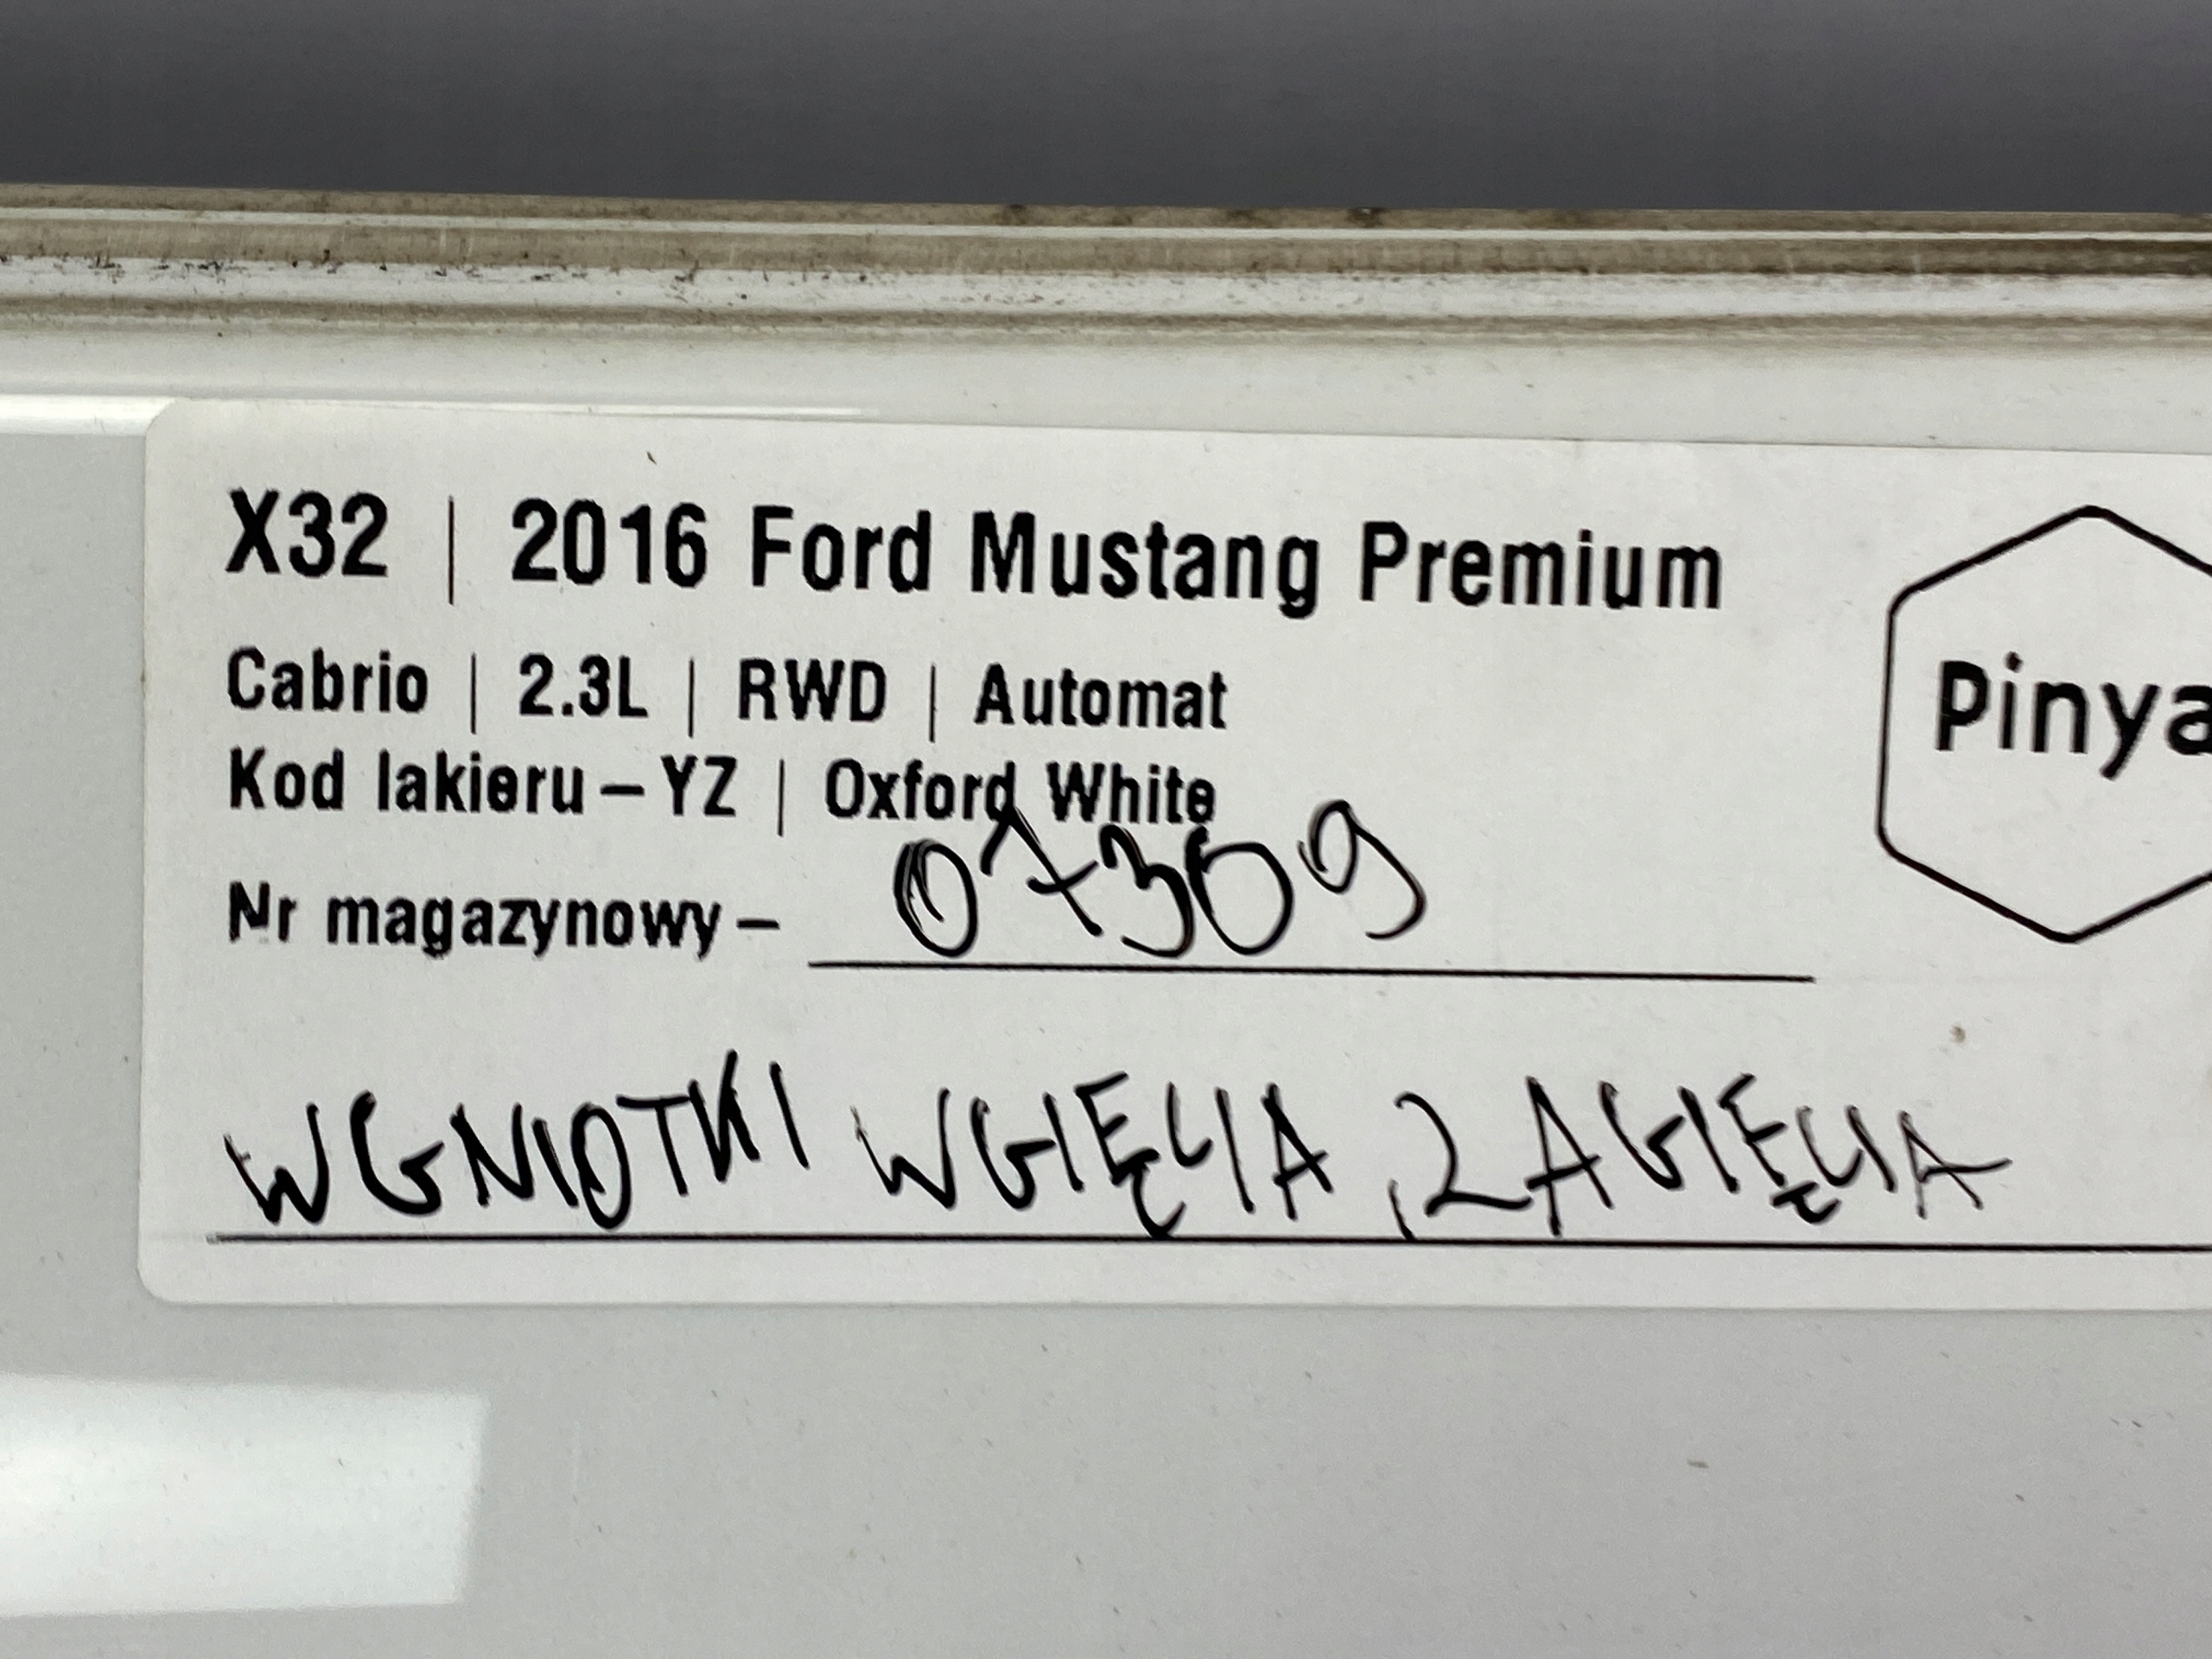 X32 | 2016 Ford Mustang Premium
Cabrio | 2.3L | RWD | Automat
Kod lakieru – YZ | Oxford White
Nr magazynowy – 07309
WGNIOTKI WGIĘCIA, ZAGIĘCIA
Pinya